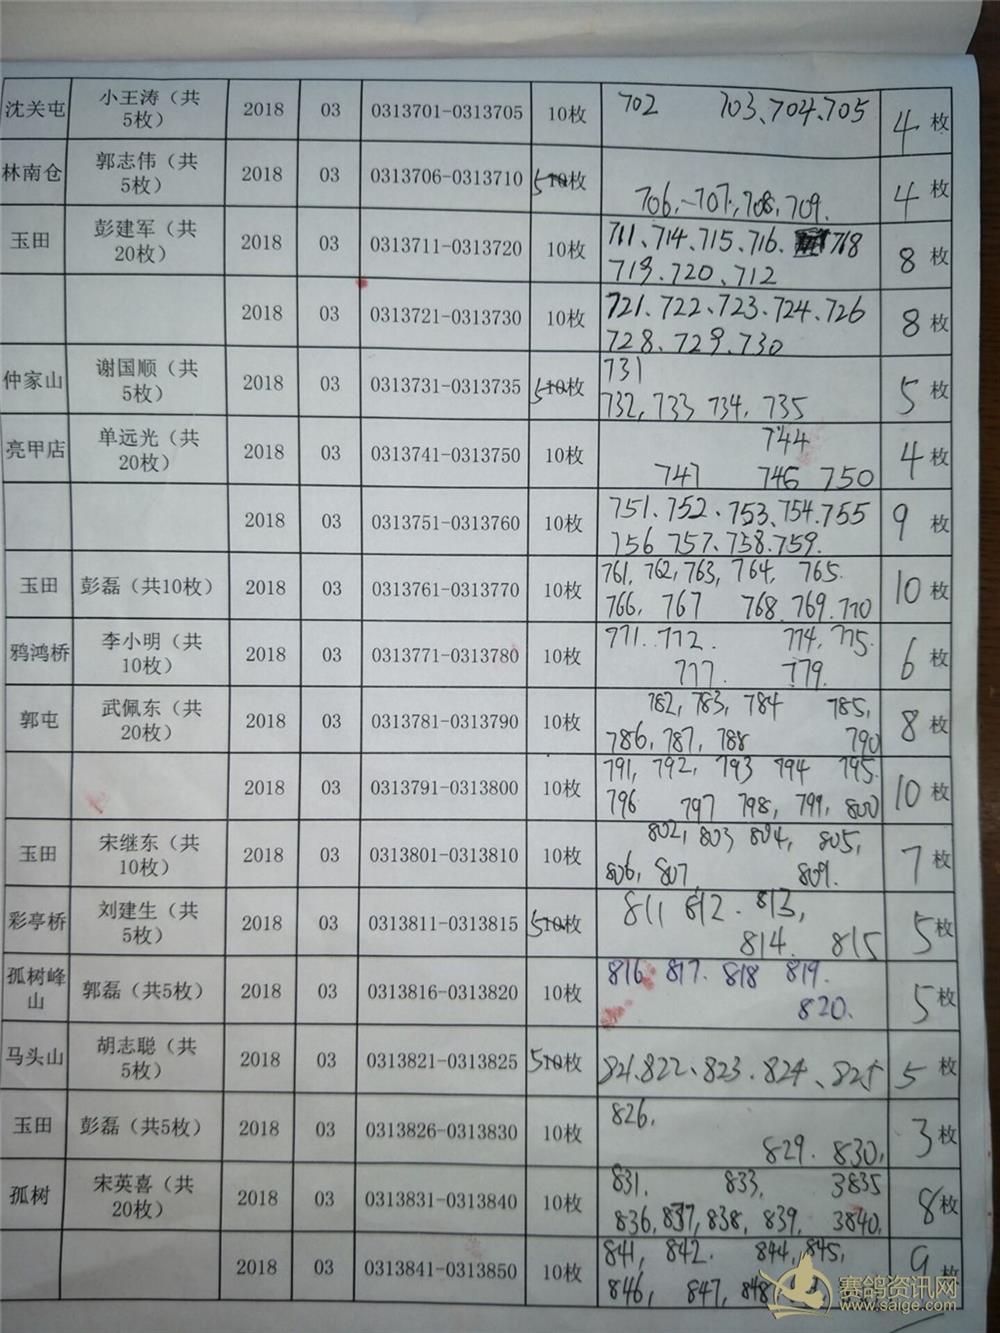 沈关屯 小王涛（共5枚） 2018 03 0313701-0313705 10枚 702 703、704、705 4枚
林南仓 郭志伟（共5枚） 2018 03 0313706-0313710 5枚 706、707、708、709. 4枚
玉田 彭建军（共20枚） 2018 03 0313711-0313720 10枚 711、714、715、716、 718
719、720、712 8枚
2018 03 0313721-0313730 10枚 721、722、723、724、726
728、729、730 8枚
仲家山 谢国顺（共5枚） 2018 03 0313731-0313735 5枚 731
732, 733 734, 735 5枚
亮甲店 单远光（共20枚） 2018 03 0313741-0313750 10枚 744
747 746 750 4枚
2018 03 0313751-0313760 10枚 751、752、753、754、755
756 757、758、759. 9枚
玉田 彭磊（共10枚） 2018 03 0313761-0313770 10枚 761, 762, 763, 764, 765.
766, 767 768 769. 770 10枚
鸦鸿桥 李小明（共10枚） 2018 03 0313771-0313780 10枚 771. 772. 774, 775.
777. 779. 6枚
郭屯 武佩东（共20枚） 2018 03 0313781-0313790 10枚 782, 783, 784 785,
786, 787, 788 790 8枚
2018 03 0313791-0313800 10枚 791, 792, 793 794 795.
796 797 798, 799, 800 10枚
玉田 宋继东（共10枚） 2018 03 0313801-0313810 10枚 802, 803 804, 805,
806, 807 809. 7枚
彩亭桥 刘建生（共5枚） 2018 03 0313811-0313815 5枚 811 812. 813,
814. 815 5枚
孤树峰山 郭磊（共5枚） 2018 03 0313816-0313820 10枚 816 817. 818 819.
820. 5枚
马头山 胡志聪（共5枚） 2018 03 0313821-0313825 5枚 821、822、823、824、825 5枚
玉田 彭磊（共5枚） 2018 03 0313826-0313830 10枚 826,
829. 830, 3枚
孤树 宋英喜（共20枚） 2018 03 0313831-0313840 10枚 831. 833, 3835
836, 837, 838, 839, 3840, 8枚
2018 03 0313841-0313850 10枚 841, 842. 844, 845,
846, 847, 848 9枚
赛鸽资讯网
www.saige.com